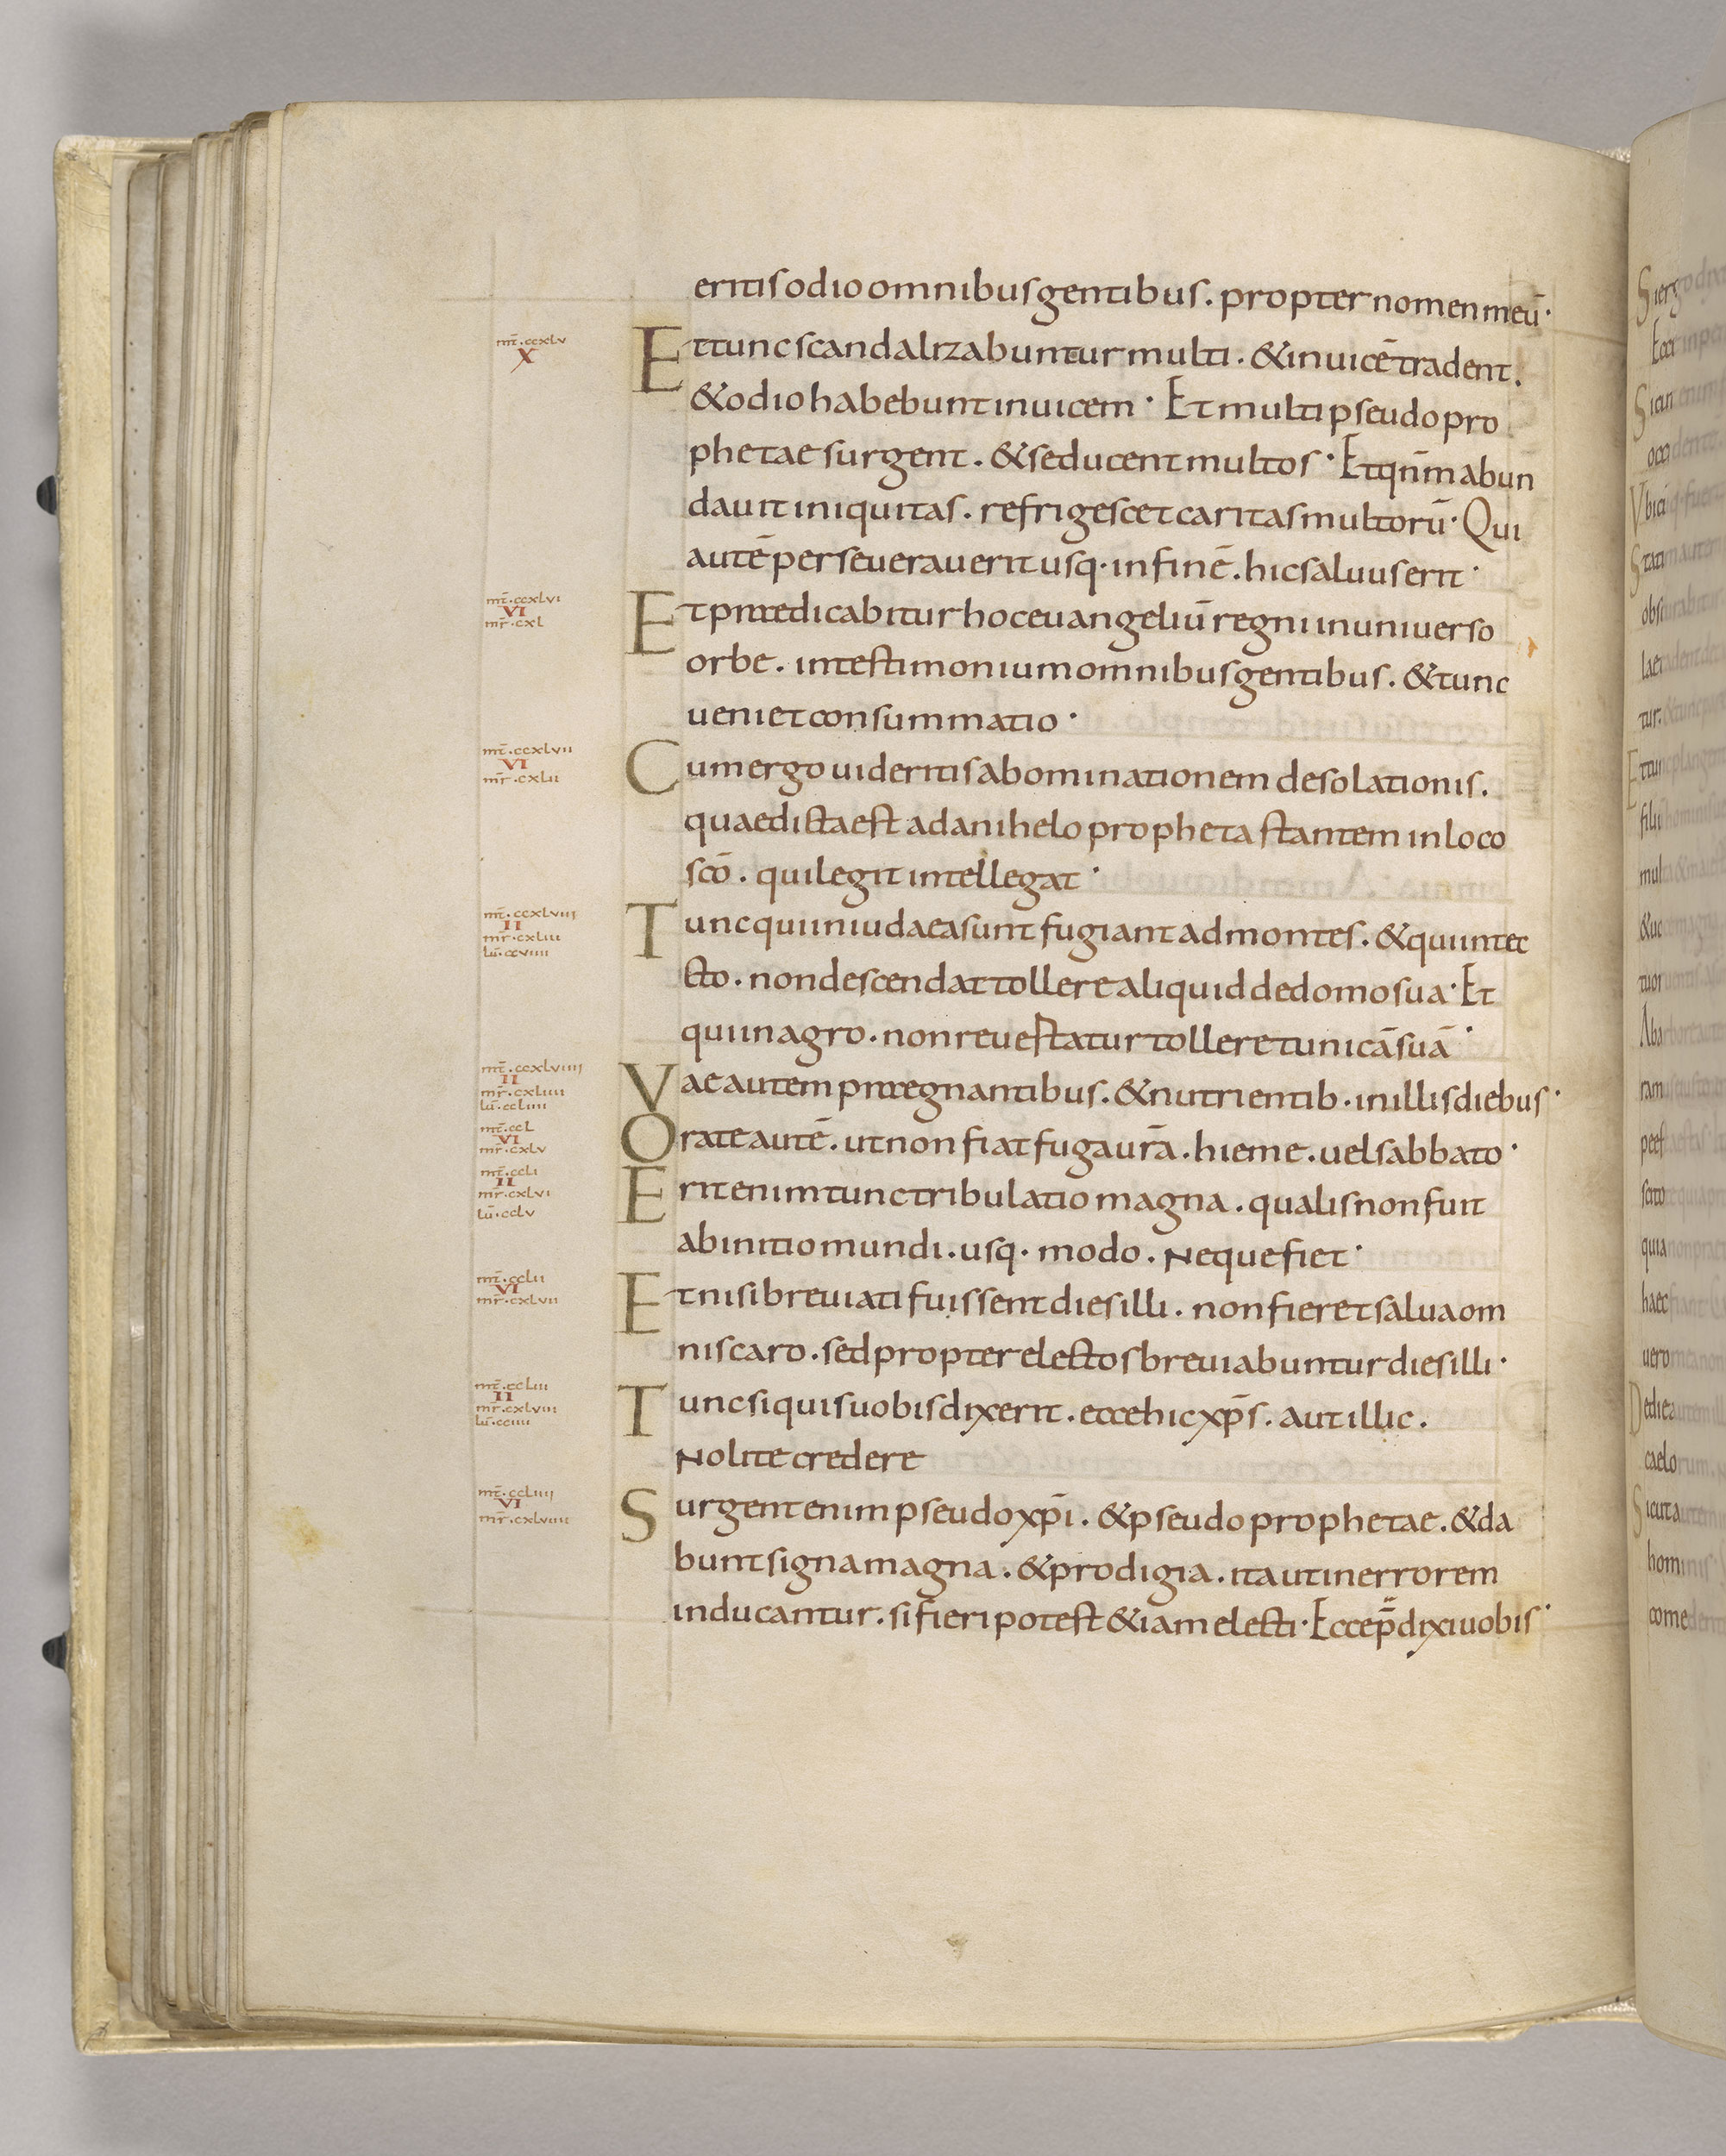 eritis odio omnibus gentibus . propter nomen meū·
mt̄·ccxlv
X
Et tunc scandalizabuntur multi . & inuicē tradent .
& odio habebunt inuicem · Et multi pseudo pro
phetae surgent . & seducent multos · Et qn̄m abun
dauit iniquitas . refrigescet caritas multorū · Qui
autē perseuerauerit usq· in finē . hic saluus erit ·
mt̄·ccxlvi
VI
mr̄·cxl
Et praedicabitur hoc euangeliū regni in uniuerso
orbe . in testimonium omnibus gentibus . & tunc
ueniet consummatio ·
mt̄·ccxlvii
VI
mr̄·cxlii
Cum ergo uideritis abominationem desolationis .
quae dicta est a danihelo propheta stantem in loco
scō . qui legit intellegat ·
mt̄·ccxlviii
II
mr̄·cxliii
lū·ccviiii
Tunc qui in iudaea sunt fugiant ad montes . & qui in tec
cto . non descendat tollere aliquid de domo sua · Et
qui in agro . non reuertatur tollere tunicā suā ·
mt̄·ccxlviiii
II
mr̄·cxliiii
lū·ccliiii
Vae autem praegnantibus . & nutrientib· in illis diebus ·
mt̄·ccl
VI
mr̄·cxlv
Orate autē . ut non fiat fuga ur̄a . hieme . uel sabbato ·
mt̄·ccli
II
mr̄·cxlvi
lū·cclv
Erit enim tunc tribulatio magna . qualis non fuit
ab initio mundi . usq· modo . Neque fiet ·
mt̄·cclii
VI
mr̄·cxlvii
Et nisi breuiati fuissent dies illi . non fieret salua om
nis caro . sed propter electos breuiabuntur dies illi ·
mt̄·ccliii
II
mr̄·cxlviii
lū·cciiii
Tunc si quis uobis dixerit . ecce hic xp̄s . aut illic .
Nolite credere
mt̄·ccliiii
VI
mr̄·cxlviiii
Surgent enim pseudo xp̄i . & pseudo prophetae . & da
bunt signa magna . & prodigia . ita ut in errorem
inducantur . si fieri potest &iam electi · Ecce p̄dixi uobis ·